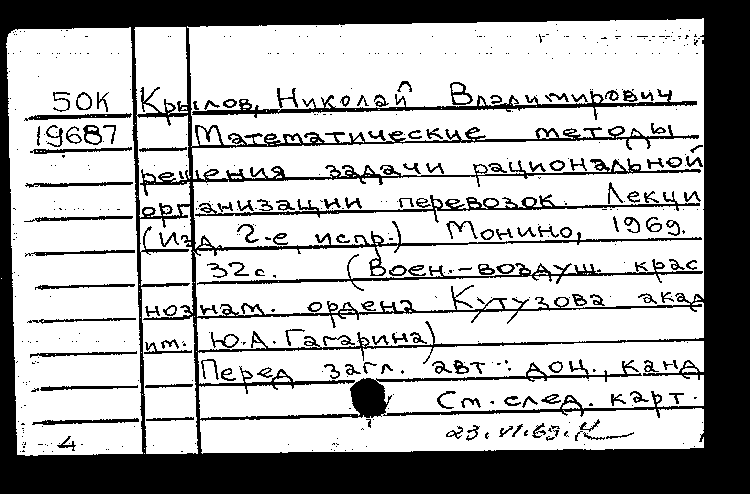 50К Крылов, Николай Владимирович
19687 Математические методы
решения задачи рациональной
организации перевозок. Лекци
(Изд. 2-е, испр.) Монино, 1969.
32с. (Воен.-воздуш. крас
нознам. ордена Кутузова акад
им. Ю.А. Гагарина)
Перед загл. авт.: доц., канд
См. след. карт.
4 23.VI.69.